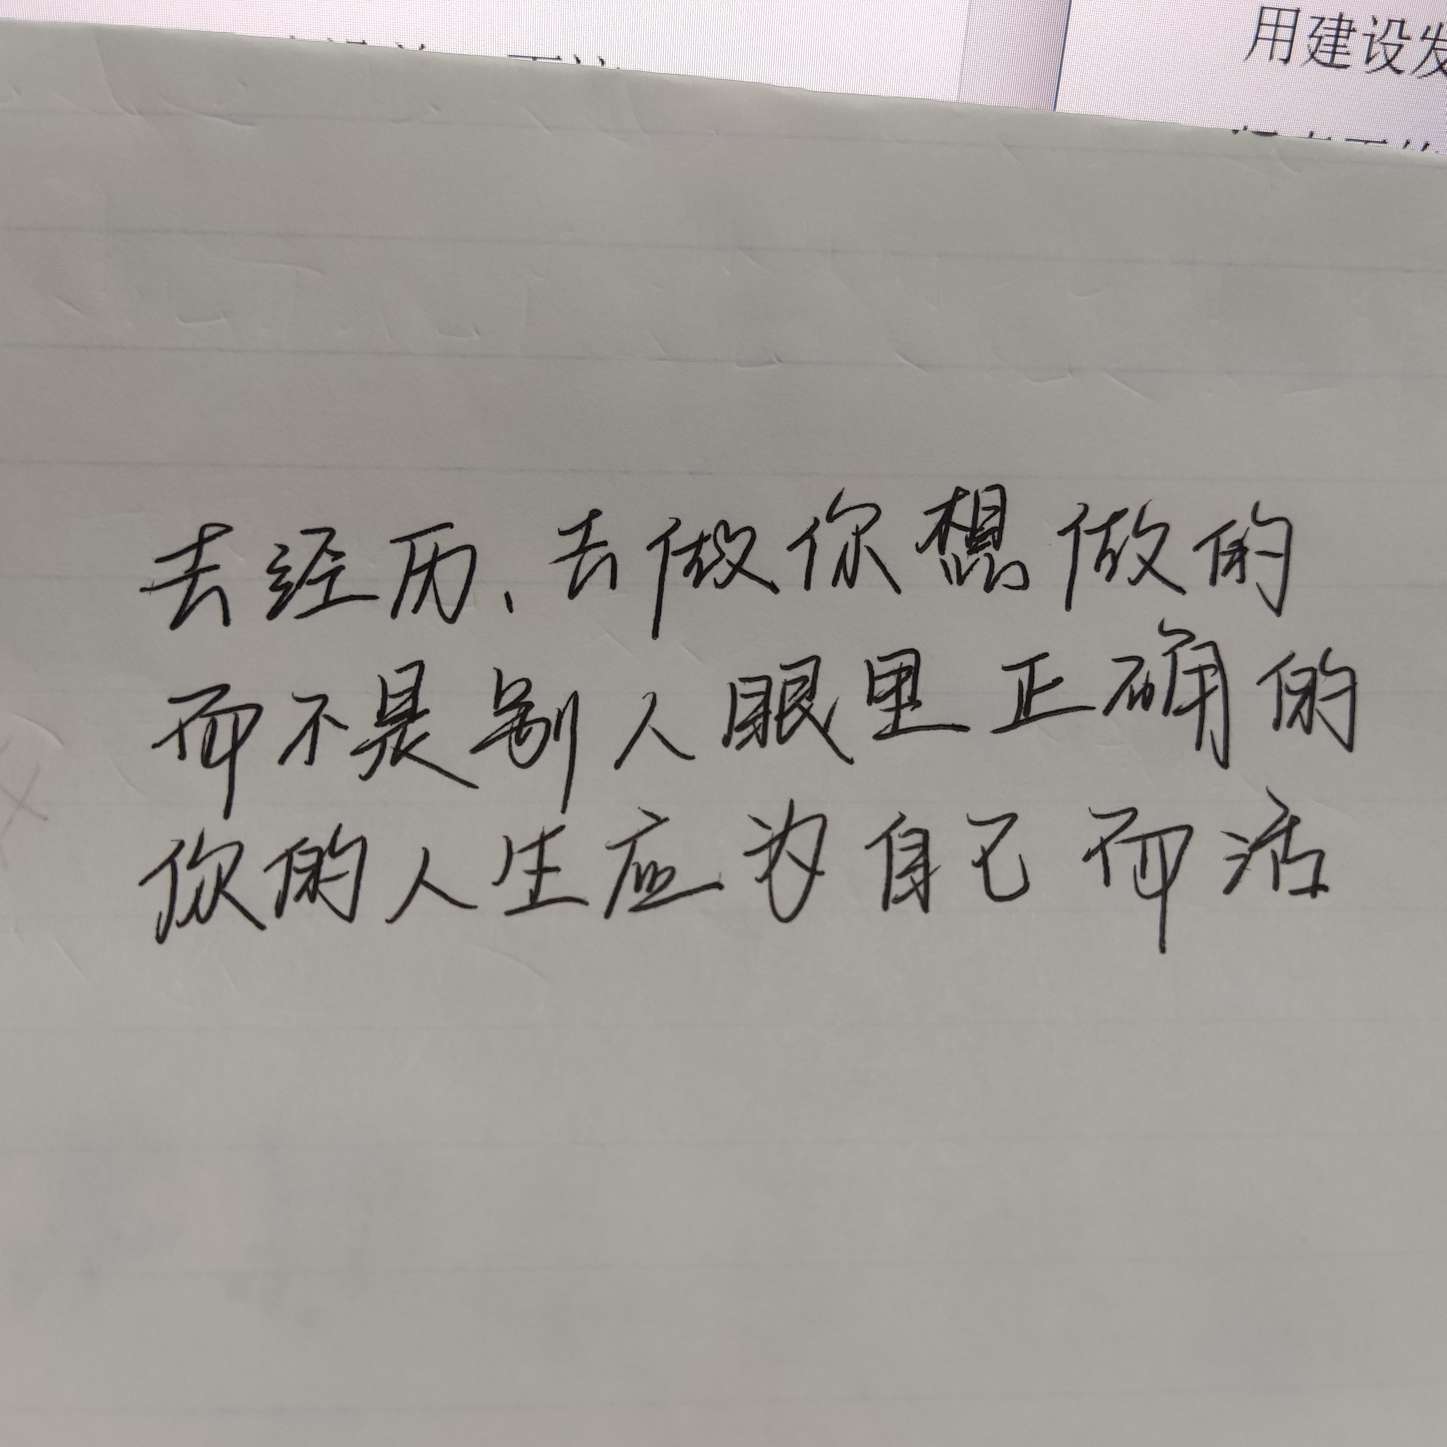 用建设发
去经历、去做你想做的
而不是别人眼里正确的
你的人生应为自己而活